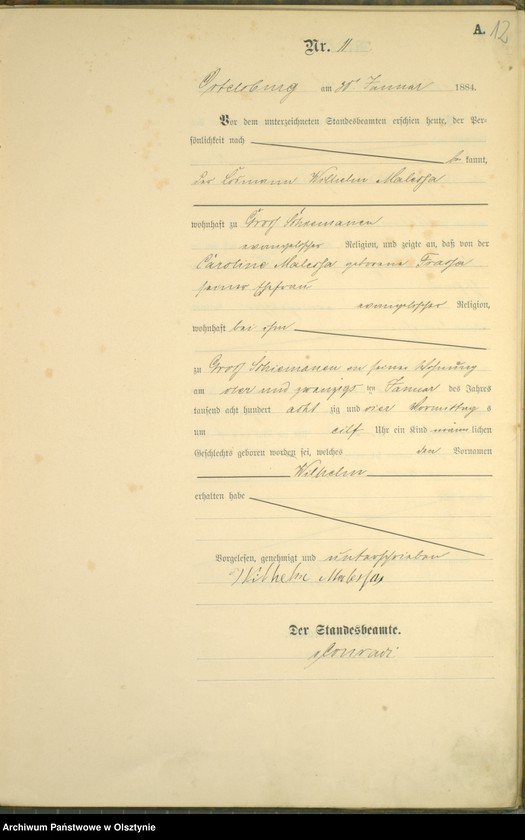 A. 12
Nr. 11
Ortelsburg am 28ᵗ Januar 1884.
Vor dem unterzeichneten Standesbeamten erschien heute, der Per-
sönlichkeit nach
be kannt,
der Losmann Wilhelm Malessa
wohnhaft zu Groß Schiemanen
evangelischer Religion, und zeigte an, daß von der
Caroline Malessa geborene
seiner Ehefrau
evangelischer Religion,
wohnhaft bei ihm
zu Groß Schiemanen in seiner Wohnung
am vier und zwanzigsten Januar des Jahres
tausend acht hundert acht zig und vier Vormittag s
um eilf Uhr ein Kind männ lichen
Geschlechts geboren worden sei, welches den Vornamen
Wilhelm
erhalten habe
Vorgelesen, genehmigt und unterschrieben
Wilhelm Malessa
Der Standesbeamte.
Conradi
Archiwum Państwowe w Olsztynie